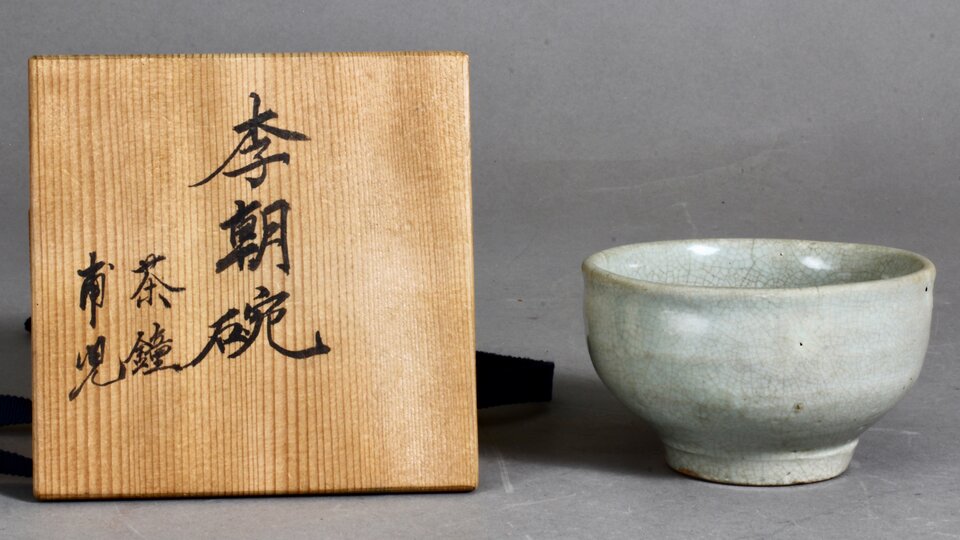 李朝碗
茶鐘
甫児